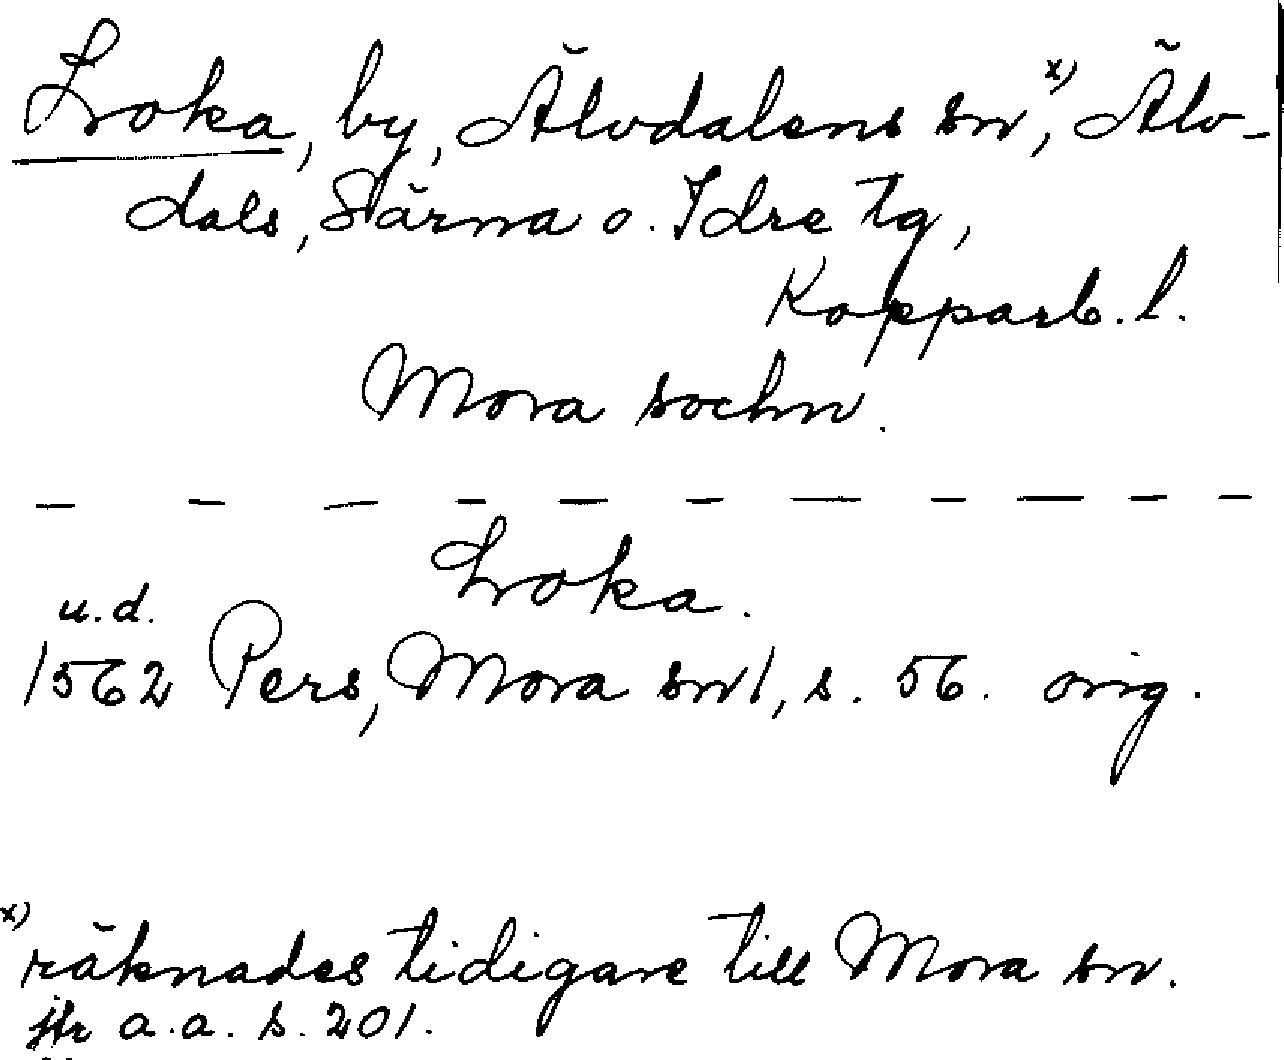 Loka, by, Älvdalens sn,ˣ⁾ Älv-
dals, Särna o. Idre tg,
Kopparb. l.
Mora sochn.
— — — — — — — — — — —
Loka.
u.d.
1562 Pers, Mora sn 1, s. 56. orig.
x) räknades tidigare till Mora sn.
jfr a.a. s. 201.